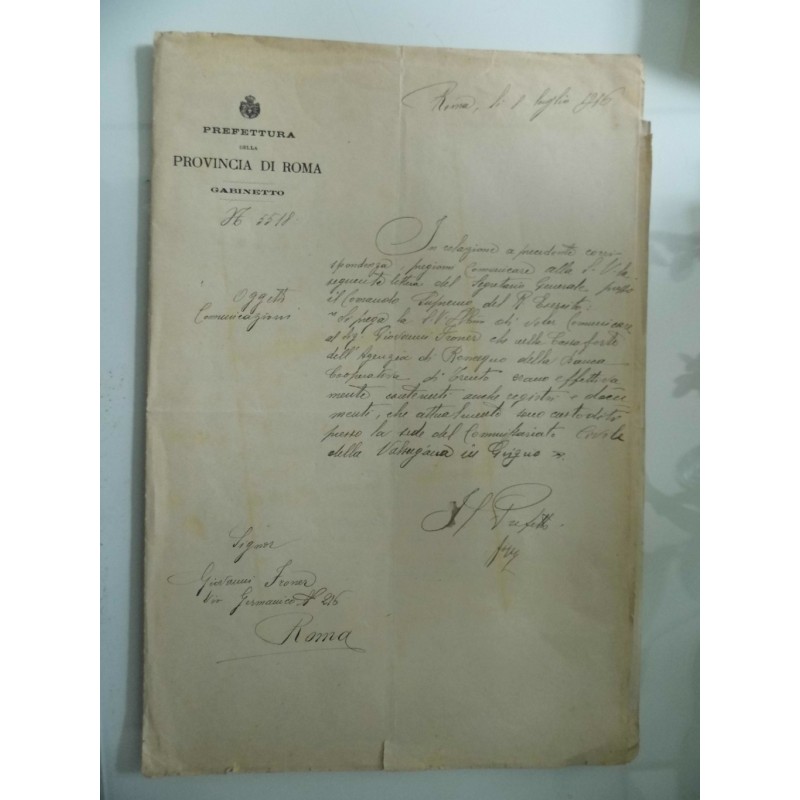 Roma, li 8 luglio 1916
PREFETTURA
DELLA
PROVINCIA DI ROMA
GABINETTO
N 5518
Oggetto
Comunicazioni
In relazione a precedente corri
spondenza pregiomi comunicare alla S. V. la
seguente lettera del Segretario Generale presso
il Comando Supremo del R. Esercito:
"Si prega la S.V. Ill.ma di voler comunicare
al Sig. Giovanni Froner che nelle Casse forte
dell'Agenzia di Roncegno della Banca
Cooperativa di Trento erano effettiva
mente contenuti anche registri e docu
menti, che attualmente sono custoditi
presso la sede del Commissariato Civile
della Valsugana in Grigno".
Il Prefetto
Signor
Giovanni Froner
Via Germanico N 216
Roma